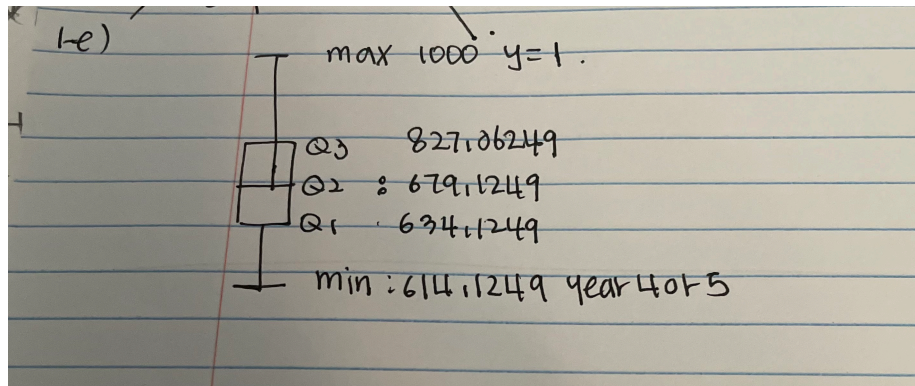 1-e)
max 1000 y=1.
Q3 827,06249
Q2 : 679,1249
Q1 . 634,1249
min : 614,1249 year 4 or 5